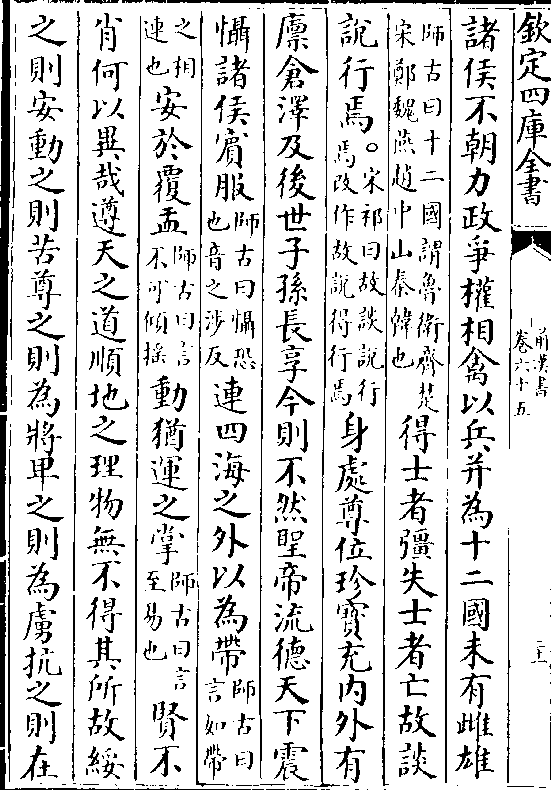 欽定四庫全書
前漢書
卷六十五
諸侯不朝力政爭權相禽以兵并為十二國未有雌雄
師古曰十二國謂魯衛齊楚
宋鄭魏燕趙中山秦韓也
得士者彊失士者亡故談
說行焉。
宋祁曰故談說行
焉改作故說得行焉
身處尊位珍寶充内外有
廪倉澤及後世子孫長享今則不然聖帝流德天下震
懾諸侯賓服
師古曰懾恐
也音之涉反
連四海之外以為帶
師古曰
言如帶
之相
連也
安於覆盂
師古曰言
不可傾揺
動猶運之掌
師古曰言
至易也
賢不
肖何以異哉遵天之道順地之理物無不得其所故綏
之則安動之則苦尊之則為將卑之則為虜抗之則在